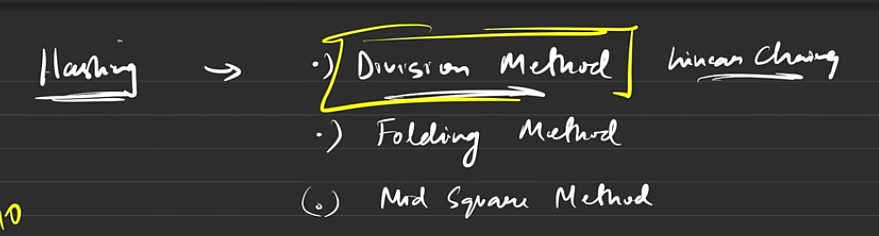 Hashing → .) Division Method Linear Chaining
.) Folding Method
(.) Mid Square Method
10